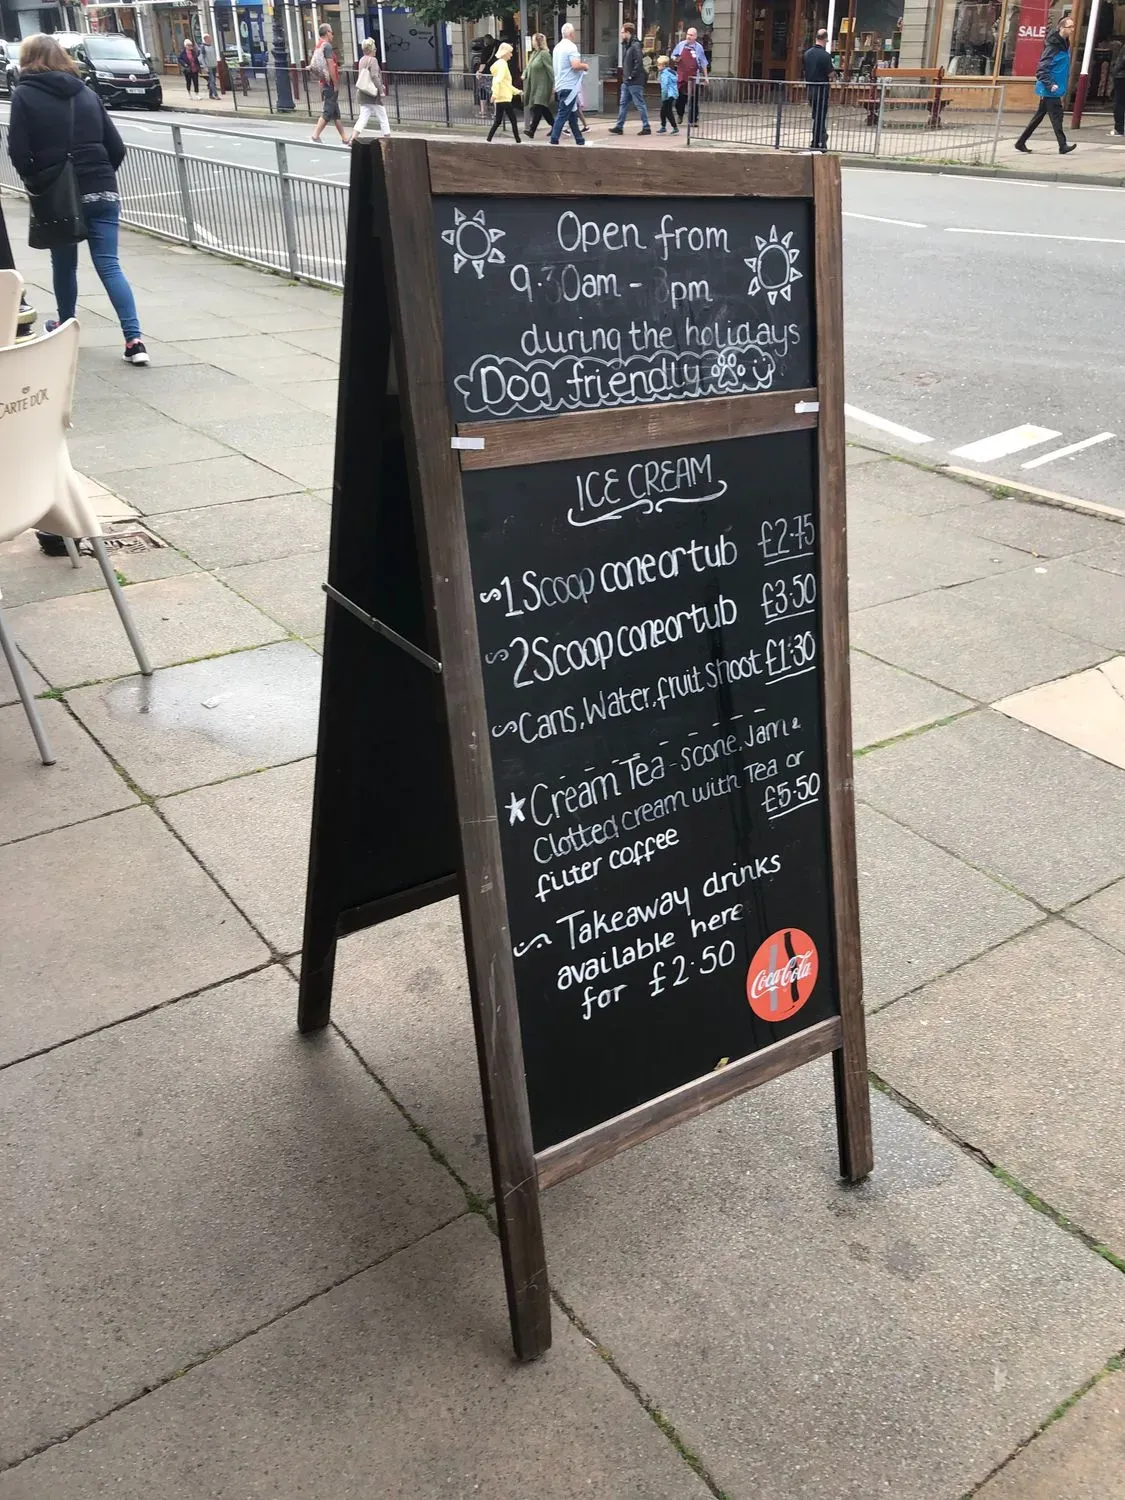 Open from
9.30am - 8pm
during the holidays
Dog friendly
ICE CREAM
1 Scoop cone or tub £2.75
2 Scoop cone or tub £3.50
Cans, Water, fruit Shoot £1.30
Cream Tea - scone, Jam &
Clotted cream with Tea or
filter coffee £5.50
Takeaway drinks
available here
for £2.50
Coca-Cola
CARTE D'OR
SALE